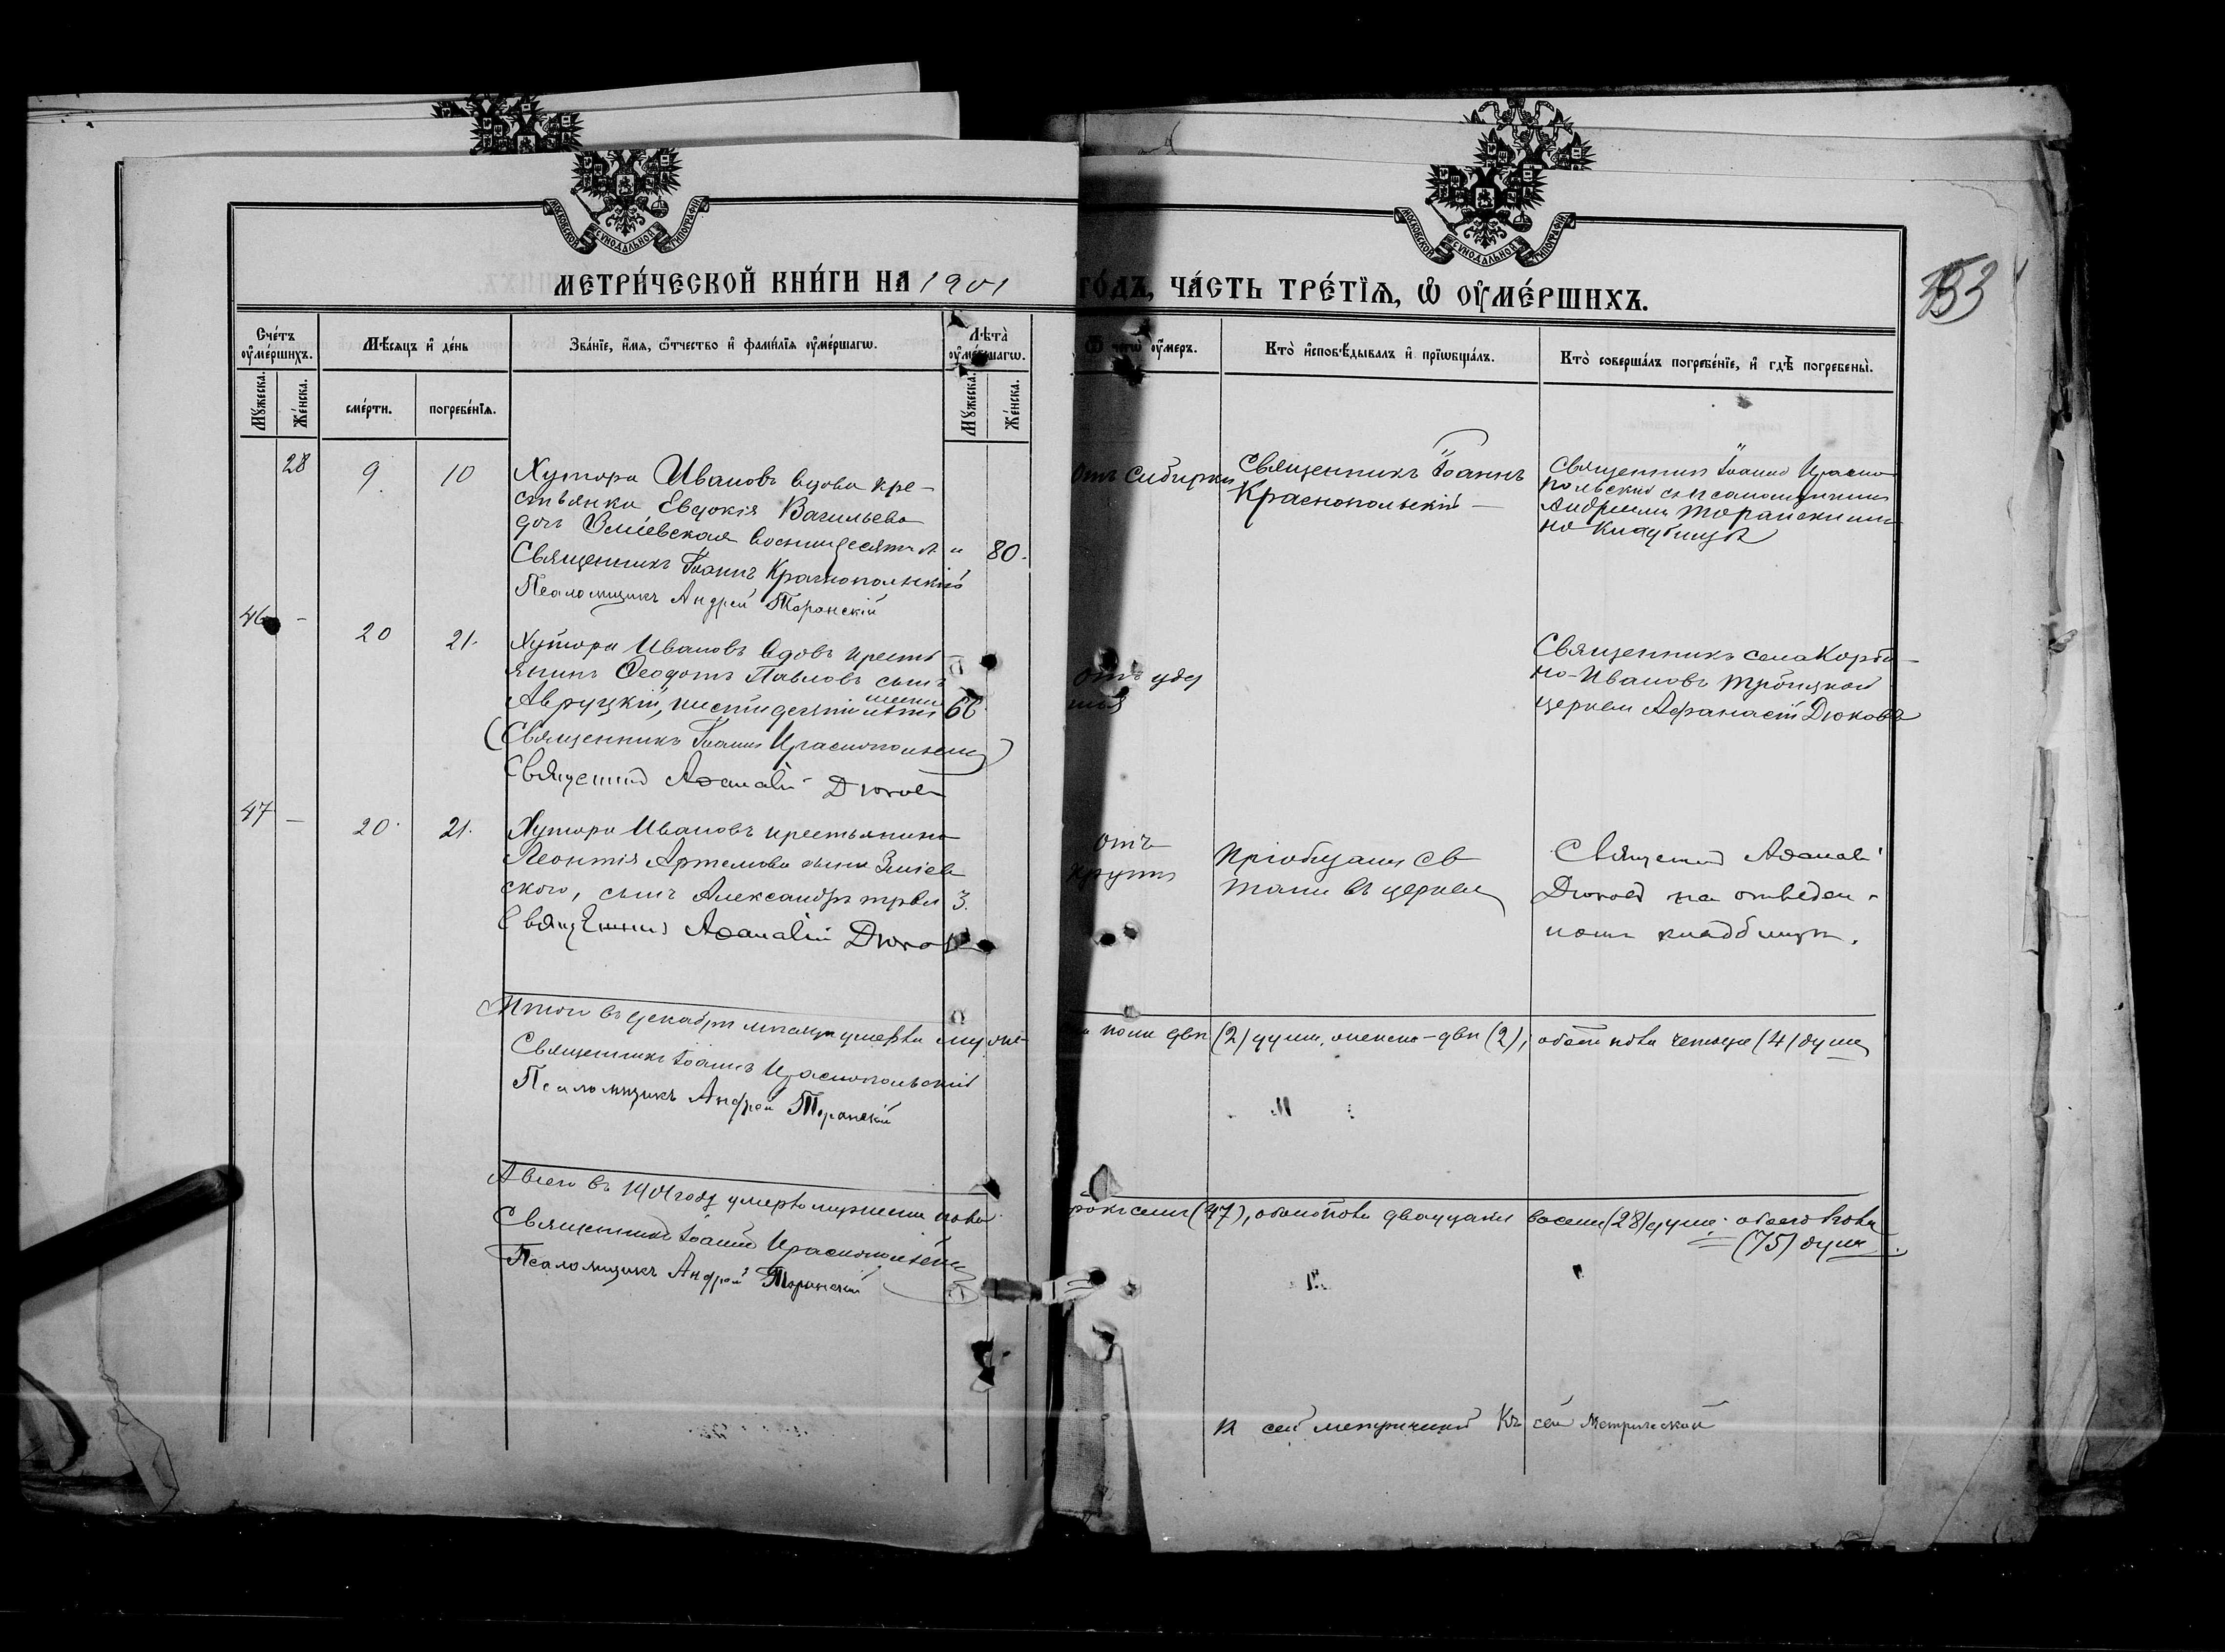 МОСКОВСКОЙ СѴНОДАЛЬНОЙ ТИПОГРАФІИ
МОСКОВСКОЙ СѴНОДАЛЬНОЙ ТИПОГРАФІИ
МЕТРИ́ЧЕСКОЙ КНИ́ГИ НА 1901 ГО́ДЪ, ЧА́СТЬ ТРЕ́ТЇѦ, Ѽ ОУ҆МЕ́РШИХЪ.
353
Сче́тъ оу҆ме́ршихъ.
Мꙋ́жеска.
Же́нска.
Мѣ́сяцъ и҆ де́нь
сме́рти.
погребе́нїѧ.
Зва́нїе, и҆́мѧ, ѻ҆́тчество и҆ фами́лїѧ оу҆ме́ршагѡ.
Лѣ́та оу҆ме́ршагѡ.
Мꙋ́жеска.
Же́нска.
Ѿ чегѡ̀ оу҆́меръ.
Кто̀ и҆сповѣ́дывалъ и҆ прїѡбща́лъ.
Кто̀ соверша́лъ погребе́нїе, и҆ гдѣ̀ погребены̀.
28
9.
10
Хутора Ивановъ вдова кре-
стьянка Евдокія Васильева
дочь Зміевская восьмидесяти л. " 80.
Священникъ Іоаннъ Краснопольскій
Псаломщикъ Андрей Торанскій
Отъ Сибирки
Священникъ Іоаннъ
Краснопольскій –
Священник Іоаннъ Красно
польскій съ псаломщикомъ
Андреемъ Торанскимъ
на кладбищѣ
46 –
20
21.
Хутора Ивановъ вдовъ кресть
янинъ Ѳеодотъ Павловъ сынъ
Авруцкій, шестидесяти шести лѣтъ 66
(Священникъ Іоаннъ Краснопольскій)
Священникъ Аѳанасій Дюковъ
Отъ уду
шья
Священникъ села Корби-
но-Ивановъ Троицкой
церкви Афанасій Дюковъ
47 –
20.
21.
Хутора Ивановъ крестьянина
Леонтія Артемова сына Зміев
ского, сынъ Александръ трехъ 3.
Священникъ Аѳанасій Дюковъ
Отъ
крупа
Пріобщали св
тайн въ церкви
Священникъ Аѳанасій
Дюковъ на отведен-
номъ кладбищѣ.
Итого въ декабрѣ мѣсяцѣ умерло мужска пола двѣ (2) души, женска – двѣ (2), обоего пола четыре (4) души
Священникъ Іоаннъ Краснопольскій
Псаломщикъ Андрей Торанскій
А всего въ 1901 году умерло мужеска пола сорокъ семь (47), женскаго пола двадцать восемь (28) душъ. обоего пола
(75) душъ.
Священникъ Іоаннъ Краснопольскій
Псаломщикъ Андрей Торанскій
К сей метрической Къ сей Метрической